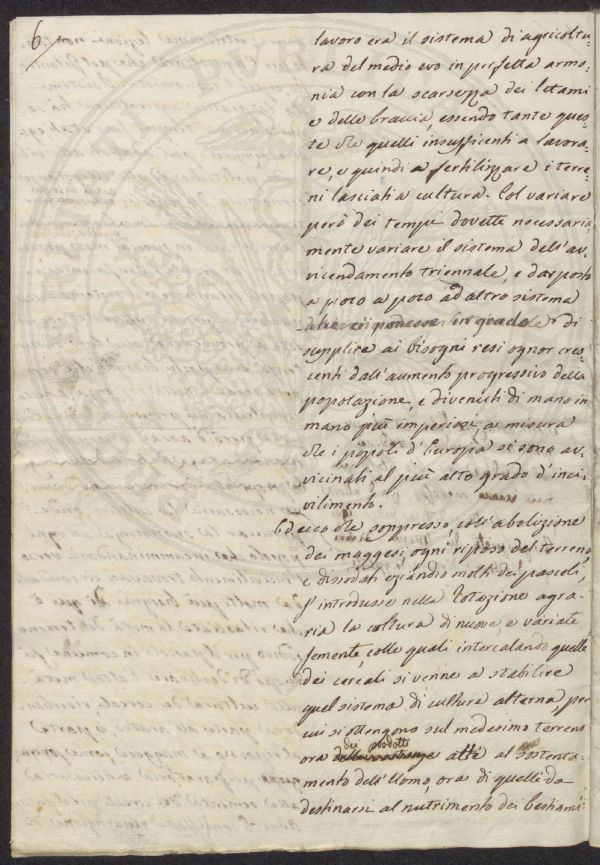 6
lavoro era il sistema di agricoltu-
ra del medio evo in perfetta armo-
nia con la scarsezza dei letami
e delle braccia, essendo tante ques-
te che quelli insufficenti a lavora-
re, e quindi a fertilizzare i terre-
ni lasciati a cultura. Col variare
però dei tempi dovette necessaria-
mente variare il sistema dell'av-
vicendamento triennale, e dar posto
a poco a poco ad altro sistema
di
supplire ai bisogni resi ognor cres-
centi dall'aumento progressivo della
popolazione, e divenuti di mano in
mano più imperiosi, a misura
che i popoli d'Europa si sono av-
vicinati al più alto grado d'inci-
vilimento.
Ed ecco che soppresso, coll'abolizione
dei maggesi, ogni riposo del terreno,
e dissodati eziandio molti dei pascoli,
s'introdusse nella rotazione agra-
ria la coltura di nuove, e variate
semente, colle quali intercalando quelle
dei cereali si venne a stabilire
quel sistema di cultura alterna, per
cui si ottengono sul medesimo terreno
dei prodotti
ora atti al sostenta-
mento dell'Uomo, ora di quelli da
destinarsi al nutrimento dei bestiami: